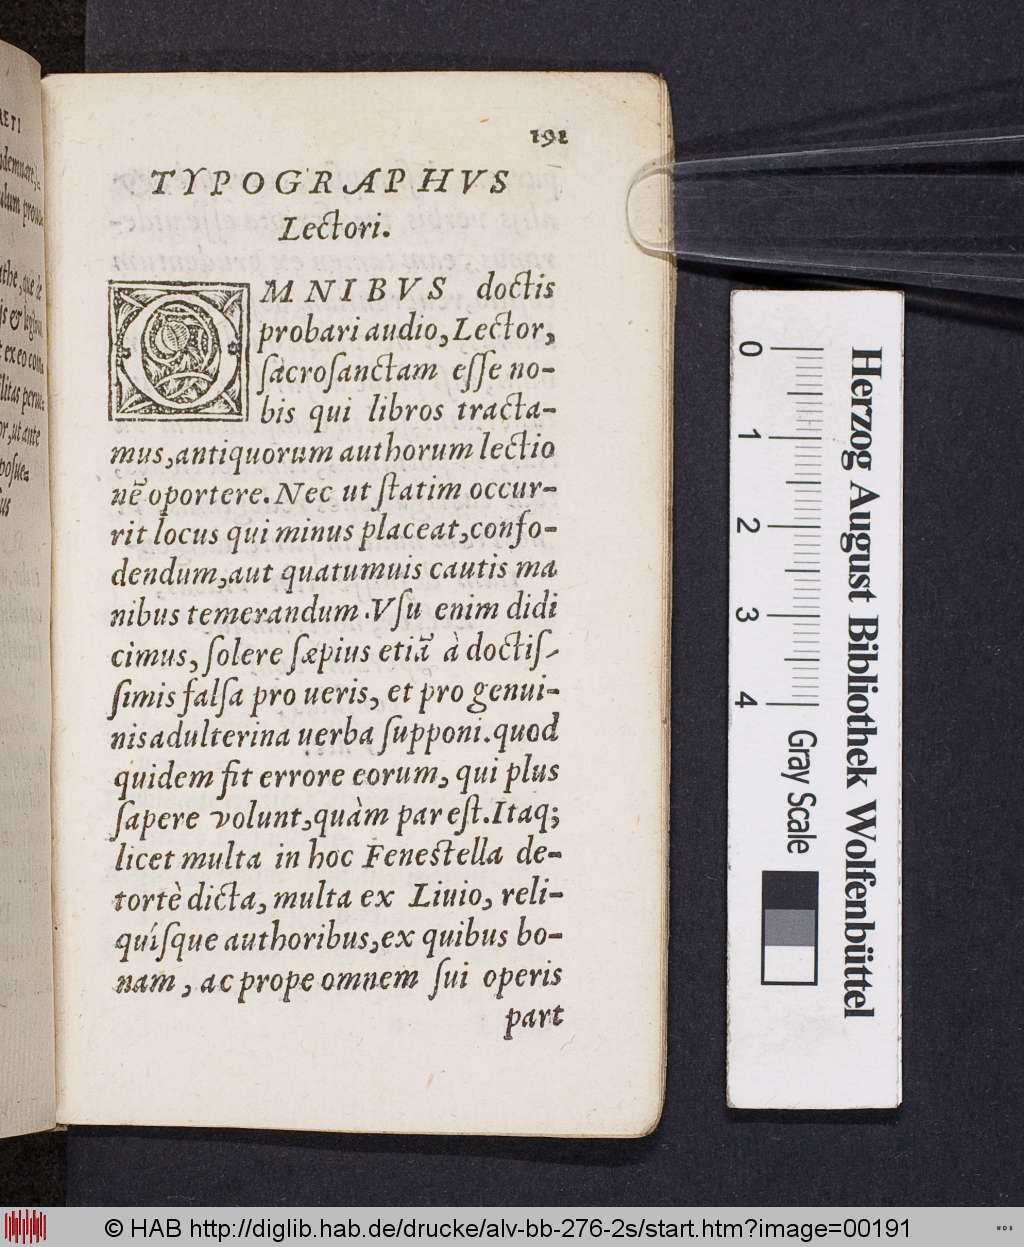 191
TYPOGRAPHVS
Lectori.
OMNIBVS doctis
probari audio, Lector,
ſacroſanctam eſſe no-
bis qui libros tracta-
mus, antiquorum authorum lectio
nē oportere. Nec ut ſtatim occur-
rit locus qui minus placeat, confo-
dendum, aut quatumuis cautis ma
nibus temerandum. Vſu enim didi
cimus, ſolere ſæpius etiā à doctiſ-
ſimis falſa pro ueris, et pro genui-
nis adulterina uerba ſupponi. quod
quidem fit errore eorum, qui plus
ſapere volunt, quàm par eſt. Itaq;
licet multa in hoc Feneſtella de-
tortè dicta, multa ex Liuio, reli-
quíſque authoribus, ex quibus bo-
nam, ac prope omnem ſui operis
part
ut ante
0 1 2 3 4
Gray Scale
Herzog August Bibliothek Wolfenbüttel
© HAB http://diglib.hab.de/drucke/alv-bb-276-2s/start.htm?image=00191